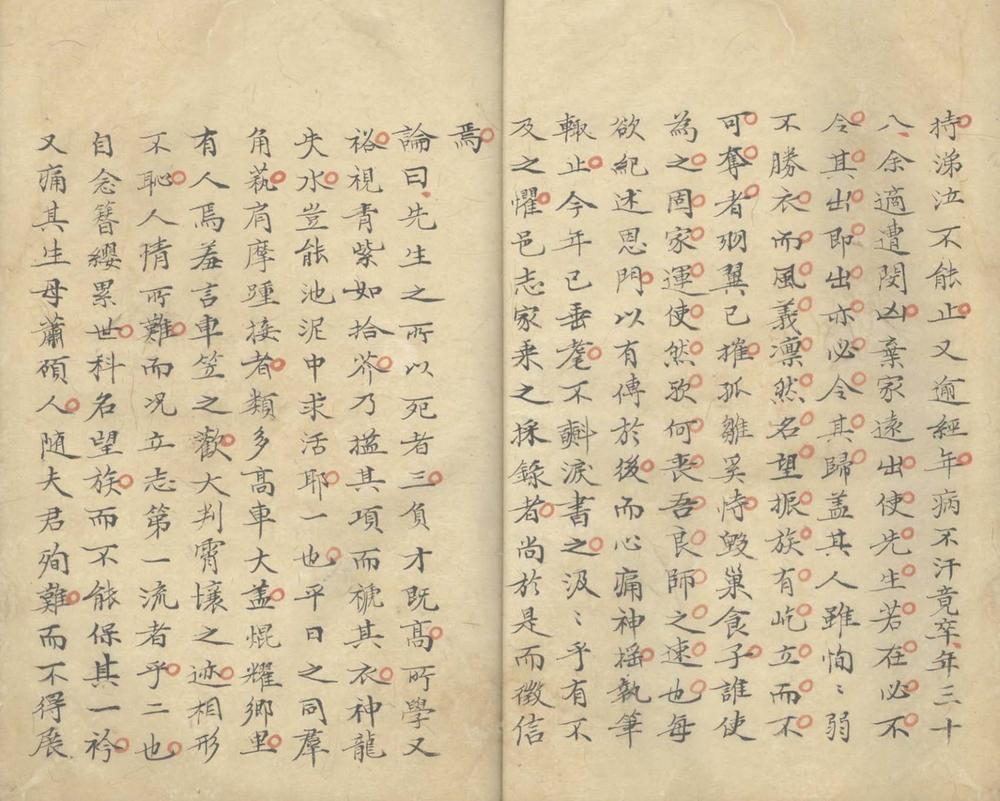 持涕泣不能止又逾經年病不汗竟卒年三十
八余適遭閔凶棄家遠出使先生若在必不
令其出即出亦必令其歸盖其人雖恂〻弱
不勝衣而風義凛然名望振族有屹立而不
可奪者羽翼已摧孤雛奚恃毀巢食子誰使
為之固家運使然歟何丧吾良師之速也每
欲紀述恩門以有傳於後而心痛神摇執筆
輙止今年已垂耄不㪺淚書之汲〻乎有不
及之懼邑志家乘之採錄者尚於是而徵信
焉
論曰先生之所以死者三負才既高所學又
裕視青紫如拾芥乃搤其項而褫其衣神龍
失水豈能池泥中求活耶一也平日之同羣
角蓺肩摩踵接者類多高車大盖焜耀鄉里
有人焉羞言車笠之歡大判霄壤之迹相形
不恥人情所難而况立志第一流者乎二也
自念簪纓累世科名望族而不能保其一衿
又痛其生母蕭碩人随夫君殉難而不得展